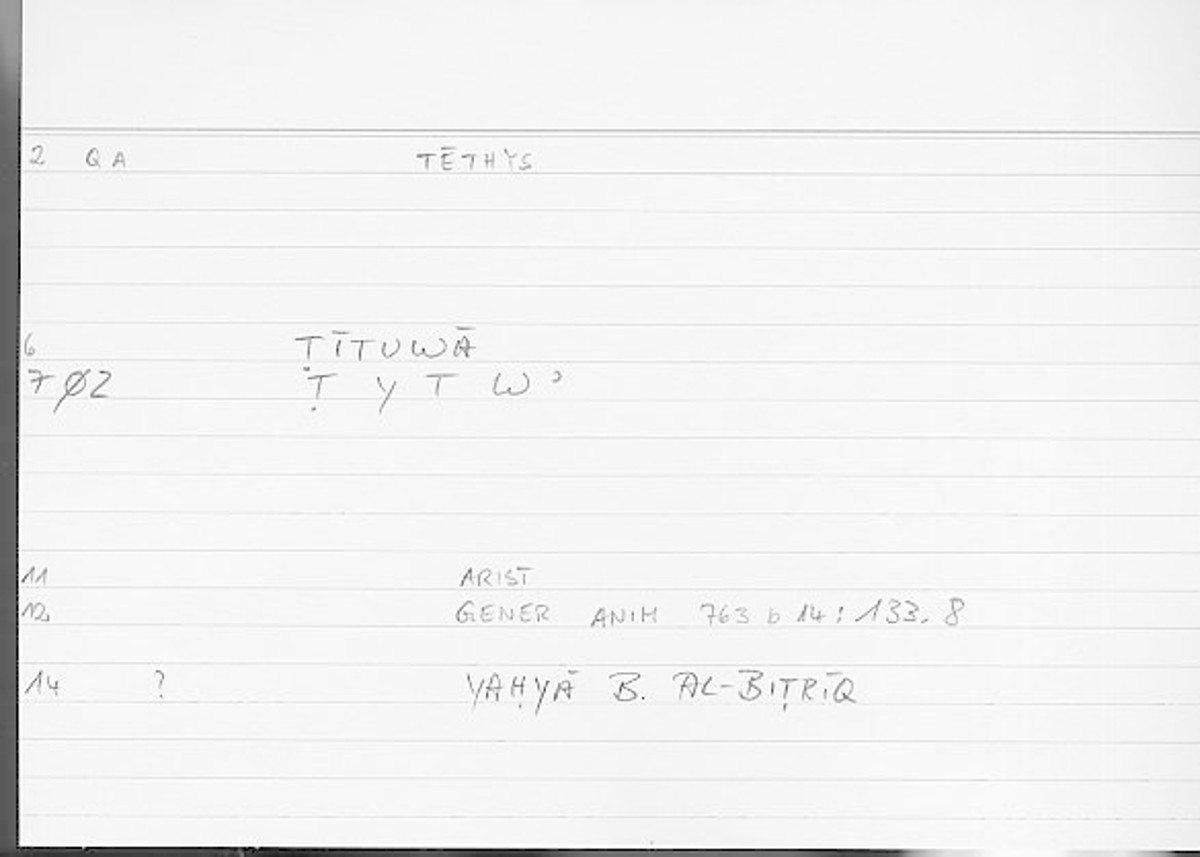 2 QA TĒTHYS
6 ṬĪTUWĀ
7 Ø2 Ṭ Y T W ʾ
11 ARIST
12 GENER ANIM 763 b 14 : 133. 8
14 ? YAḤYĀ B. AL-BIṬRĪQ